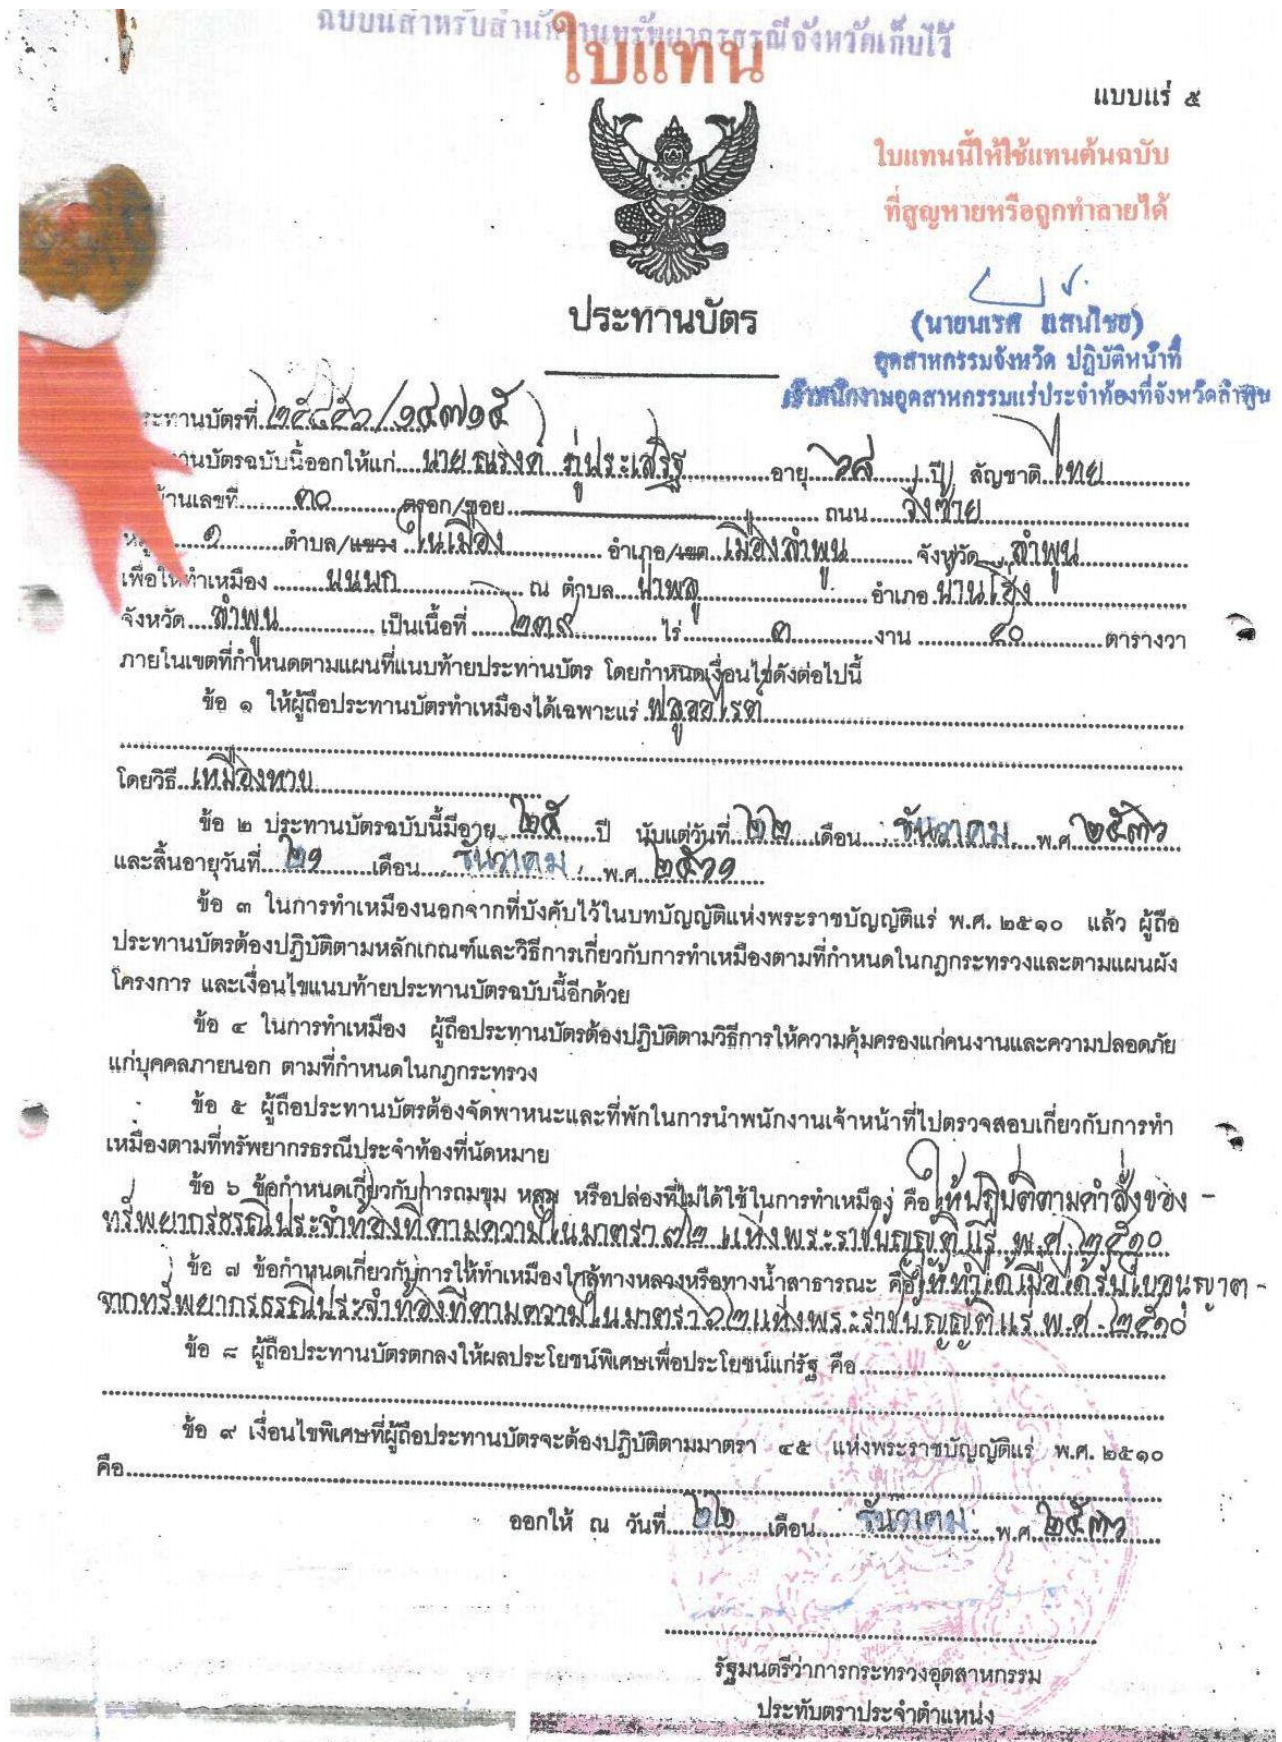 ฉบับนี้สำหรับสำนักงานทรัพยากรธรณีจังหวัดเก็บไว้
ใบแทน
แบบแร่ ๕
ใบแทนนี้ให้ใช้แทนต้นฉบับ
ที่สูญหายหรือถูกทำลายได้
ประทานบัตร
(นายนเรศ แสนไชย)
อุตสาหกรรมจังหวัด ปฏิบัติหน้าที่
เจ้าพนักงานอุตสาหกรรมแร่ประจำท้องที่จังหวัดลำพูน
ประทานบัตรที่ ๒๕๘๕๖/๑๔๗๑๕
ประทานบัตรฉบับนี้ออกให้แก่ นายณรงค์ ภู่ประเสริฐ อายุ ๖๘ ปี สัญชาติ ไทย
บ้านเลขที่ ๓๐ ตรอก/ซอย ถนน วังซ้าย
หมู่ ๑ ตำบล/แขวง ในเมือง อำเภอ/เขต เมืองลำพูน จังหวัด ลำพูน
เพื่อให้ทำเหมือง บนบก ณ ตำบล ป่าพลู อำเภอ บ้านโฮ่ง
จังหวัด ลำพูน เป็นเนื้อที่ ๒๓๙ ไร่ ๓ งาน ๔๐ ตารางวา
ภายในเขตที่กำหนดตามแผนที่แนบท้ายประทานบัตร โดยกำหนดเงื่อนไขดังต่อไปนี้
ข้อ ๑ ให้ผู้ถือประทานบัตรทำเหมืองได้เฉพาะแร่ ฟลูออไรต์
โดยวิธี เหมืองหาบ
ข้อ ๒ ประทานบัตรฉบับนี้มีอายุ ๒๕ ปี นับแต่วันที่ ๒๒ เดือน ธันวาคม พ.ศ. ๒๕๓๖
และสิ้นอายุวันที่ ๒๑ เดือน ธันวาคม พ.ศ. ๒๕๖๑
ข้อ ๓ ในการทำเหมืองนอกจากที่บังคับไว้ในบทบัญญัติแห่งพระราชบัญญัติแร่ พ.ศ. ๒๕๑๐ แล้ว ผู้ถือ
ประทานบัตรต้องปฏิบัติตามหลักเกณฑ์และวิธีการเกี่ยวกับการทำเหมืองตามที่กำหนดในกฎกระทรวงและตามแผนผัง
โครงการ และเงื่อนไขแนบท้ายประทานบัตรฉบับนี้อีกด้วย
ข้อ ๔ ในการทำเหมือง ผู้ถือประทานบัตรต้องปฏิบัติตามวิธีการให้ความคุ้มครองแก่คนงานและความปลอดภัย
แก่บุคคลภายนอก ตามที่กำหนดในกฎกระทรวง
ข้อ ๕ ผู้ถือประทานบัตรต้องจัดพาหนะและที่พักในการนำพนักงานเจ้าหน้าที่ไปตรวจสอบเกี่ยวกับการทำ
เหมืองตามที่ทรัพยากรธรณีประจำท้องที่นัดหมาย
ข้อ ๖ ข้อกำหนดเกี่ยวกับการถมขุม หลุม หรือปล่องที่ไม่ได้ใช้ในการทำเหมือง คือ ให้ปฏิบัติตามคำสั่งของ -
ทรัพยากรธรณีประจำท้องที่ตามความในมาตรา ๗๒ แห่งพระราชบัญญัติแร่ พ.ศ. ๒๕๑๐
ข้อ ๗ ข้อกำหนดเกี่ยวกับการให้ทำเหมืองใกล้ทางหลวงหรือทางน้ำสาธารณะ คือ ให้ทำได้เมื่อได้รับใบอนุญาต -
จากทรัพยากรธรณีประจำท้องที่ตามความในมาตรา ๖๒ แห่งพระราชบัญญัติแร่ พ.ศ. ๒๕๑๐
ข้อ ๘ ผู้ถือประทานบัตรตกลงให้ผลประโยชน์พิเศษเพื่อประโยชน์แก่รัฐ คือ
ข้อ ๙ เงื่อนไขพิเศษที่ผู้ถือประทานบัตรจะต้องปฏิบัติตามมาตรา ๔๕ แห่งพระราชบัญญัติแร่ พ.ศ. ๒๕๑๐
คือ
ออกให้ ณ วันที่ ๒๒ เดือน ธันวาคม พ.ศ. ๒๕๓๖
รัฐมนตรีว่าการกระทรวงอุตสาหกรรม
ประทับตราประจำตำแหน่ง